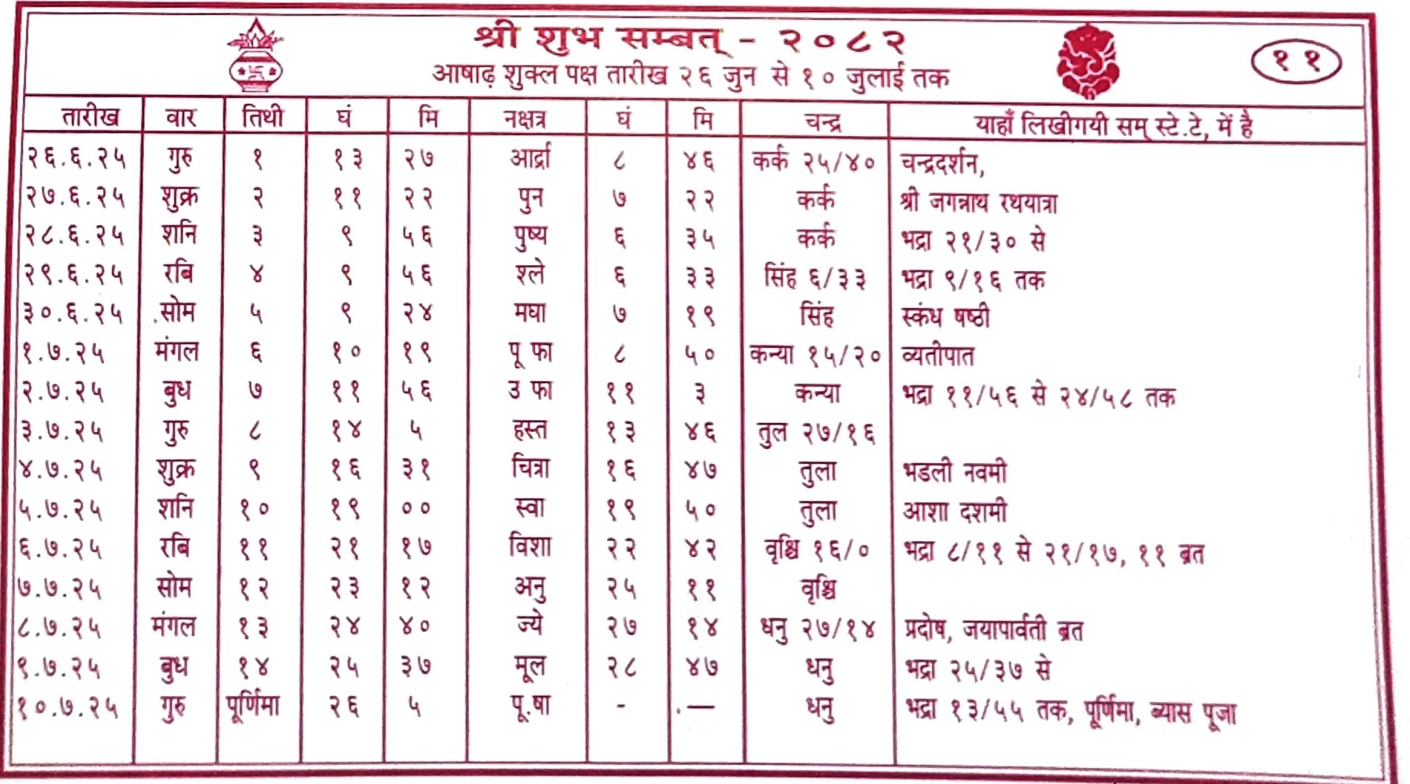 श्री शुभ सम्बत् - २०८२
आषाढ़ शुक्ल पक्ष तारीख २६ जुन से १० जुलाई तक
११
तारीख वार तिथी घं मि नक्षत्र घं मि चन्द्र याहाँ लिखीगयी सम् स्टे.टे, में है
२६.६.२५ गुरु १ १३ २७ आर्द्रा ८ ४६ कर्क २५/४० चन्द्रदर्शन,
२७.६.२५ शुक्र २ ११ २२ पुन ७ २२ कर्क श्री जगन्नाथ रथयात्रा
२८.६.२५ शनि ३ ९ ५६ पुष्य ६ ३५ कर्क भद्रा २१/३० से
२९.६.२५ रबि ४ ९ ५६ श्ले ६ ३३ सिंह ६/३३ भद्रा ९/१६ तक
३०.६.२५ सोम ५ ९ २४ मघा ७ १९ सिंह स्कंध षष्ठी
१.७.२५ मंगल ६ १० १९ पू फा ८ ५० कन्या १५/२० व्यतीपात
२.७.२५ बुध ७ ११ ५६ उ फा ११ ३ कन्या भद्रा ११/५६ से २४/५८ तक
३.७.२५ गुरु ८ १४ ५ हस्त १३ ४६ तुल २७/१६
४.७.२५ शुक्र ९ १६ ३१ चित्रा १६ ४७ तुला भडली नवमी
५.७.२५ शनि १० १९ ०० स्वा १९ ५० तुला आशा दशमी
६.७.२५ रबि ११ २१ १७ विशा २२ ४२ वृश्चि १६/० भद्रा ८/११ से २१/१७, ११ ब्रत
७.७.२५ सोम १२ २३ १२ अनु २५ ११ वृश्चि
८.७.२५ मंगल १३ २४ ४० ज्ये २७ १४ धनु २७/१४ प्रदोष, जयापार्वती ब्रत
९.७.२५ बुध १४ २५ ३७ मूल २८ ४७ धनु भद्रा २५/३७ से
१०.७.२५ गुरु पूर्णिमा २६ ५ पू.षा - .— धनु भद्रा १३/५५ तक, पूर्णिमा, ब्यास पूजा